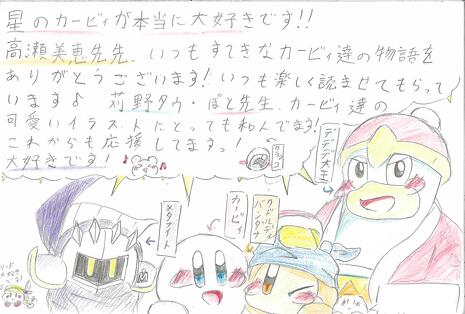 星のカービィが本当に大好きです!!
高瀬美恵先先、いつもすてきなカービィ達の物語を
ありがとうございます!いつも楽しく読ませてもらって
います♪ 苅野タウ・ぽと先生、カービィ達の
可愛いイラストにとっても和んでます!
これからも応援してますっ!
大好きです!
デデデ大王
メタナイト
カービィ
バンダナ